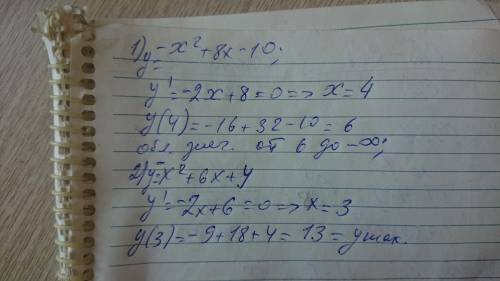 1) y=-x²+8x-10;
y'=-2x+8=0=>x=4
y(4)=-16+32-10=6
обл. знач. от 6 до -∞;
2) y=-x²+6x+4
y'=-2x+6=0=>x=3
y(3)=-9+18+4=13=yмах.